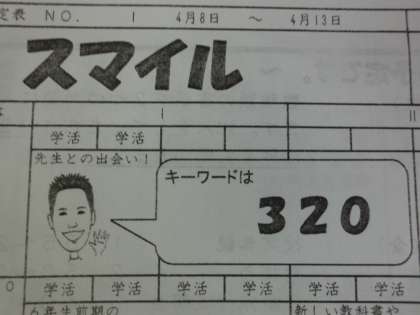 定表 NO. 1 4月8日 ～ 4月13日
スマイル
学活 学活
先生との出会い！
キーワードは
320
学活 学活 学活 学活 学活 学活
6年生前期の
新しい教科書や